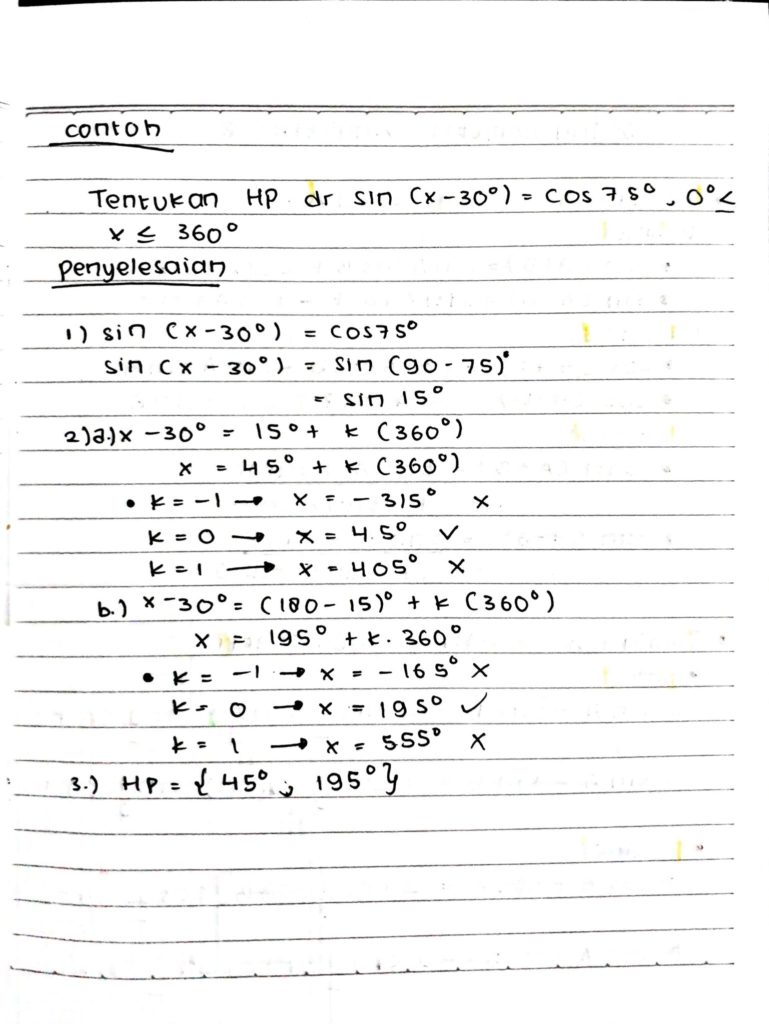 contoh
Tentukan HP dr sin (x-30°) = cos 75°, 0° ≤
x ≤ 360°
penyelesaian
1) sin (x-30°) = cos75°
sin (x - 30°) = sin (90 - 75)°
= sin 15°
2)a.)x -30° = 15°+ k (360°)
x = 45° + k (360°)
• k = -1 → x = - 315° x
k = 0 → x = 45° ✓
k = 1 → x = 405° x
b.) x -30° = (180 - 15)° + k (360°)
x = 195° + k. 360°
• k = -1 → x = - 165° x
k = 0 → x = 195° ✓
k = 1 → x = 555° x
3.) HP = { 45° ; 195°}